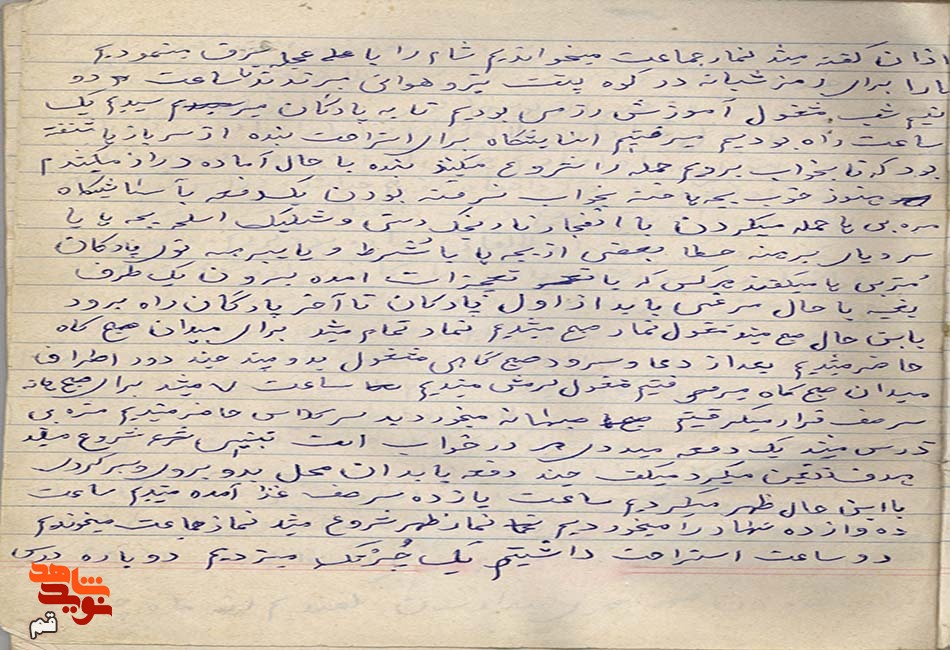 اذان گفته میشد نماز جماعت میخواندیم شام را با عجله میل مینمودیم
ما را برای رزمز شبانه در کوه پشت پترو هوائی میبردند تا ساعت دو
نیم شب مشغول آموزش رزمی بودیم تا به پادگان میرسیدیم یک
ساعت راه بودیم میرفتیم آسایشگاه برای استراحت بنده از سرباز
بود که تا بخواب بردیم حمله را شروع میکنند بنده با حال آماده دراز میکشدم
هنوز خوب بچه ها خته بخواب نرفته بودن یکدفعه بآسایشگاه
مربی ها حمله میکردن با انفجار نارنجک دستی و شلیک اسلحه بچه ها با
سر و پای برهنه بعضی از بچه ها با شرط و یا پیرهن توی پادگان
مربی ها میگفتند هر کس که با تجهیزات آمده بیرون یک طرف
بقیه با حال مرغی باید از اول پادگان تا آخر پادگان راه برود
باین حال صبح میشد مشغول نماز صبح میشدیم نماز تمام میشد برای میدان صبح گاه
حاضر میشدیم بعد از دعا و سرود صبح گاهی مشغول بدو میشد چند دور اطراف
میدان صبح گاه میرفتیم مشغول نرمش میشدیم ساعت ۷ میشد برای صبحانه
سر صف قرار میگرفتیم صبحانه میخوردید سر کلاس حاضر میشدیم مربی
درس میشد یک دفعه میدید در خواب است تنبیهش شروع میشد
هدف تعین میکرد میگفت چند دفعه باید ان محل بدو بروی و برگردی
با این حال ظهر میکردیم ساعت یازده سر صف غذا آمده میشدیم ساعت
دوازده نهار را میخوردیم نماز ظهر شروع میشد نماز جماعت میخوندیم
دو ساعت استراحت داشتیم یک چُرتک میزدیم دوباره درس
نوید شاهد
قم